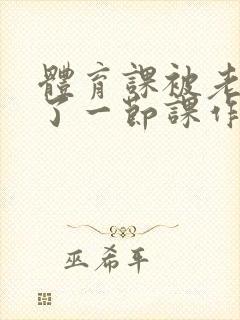 體育課被老
了一節課作
巫希平